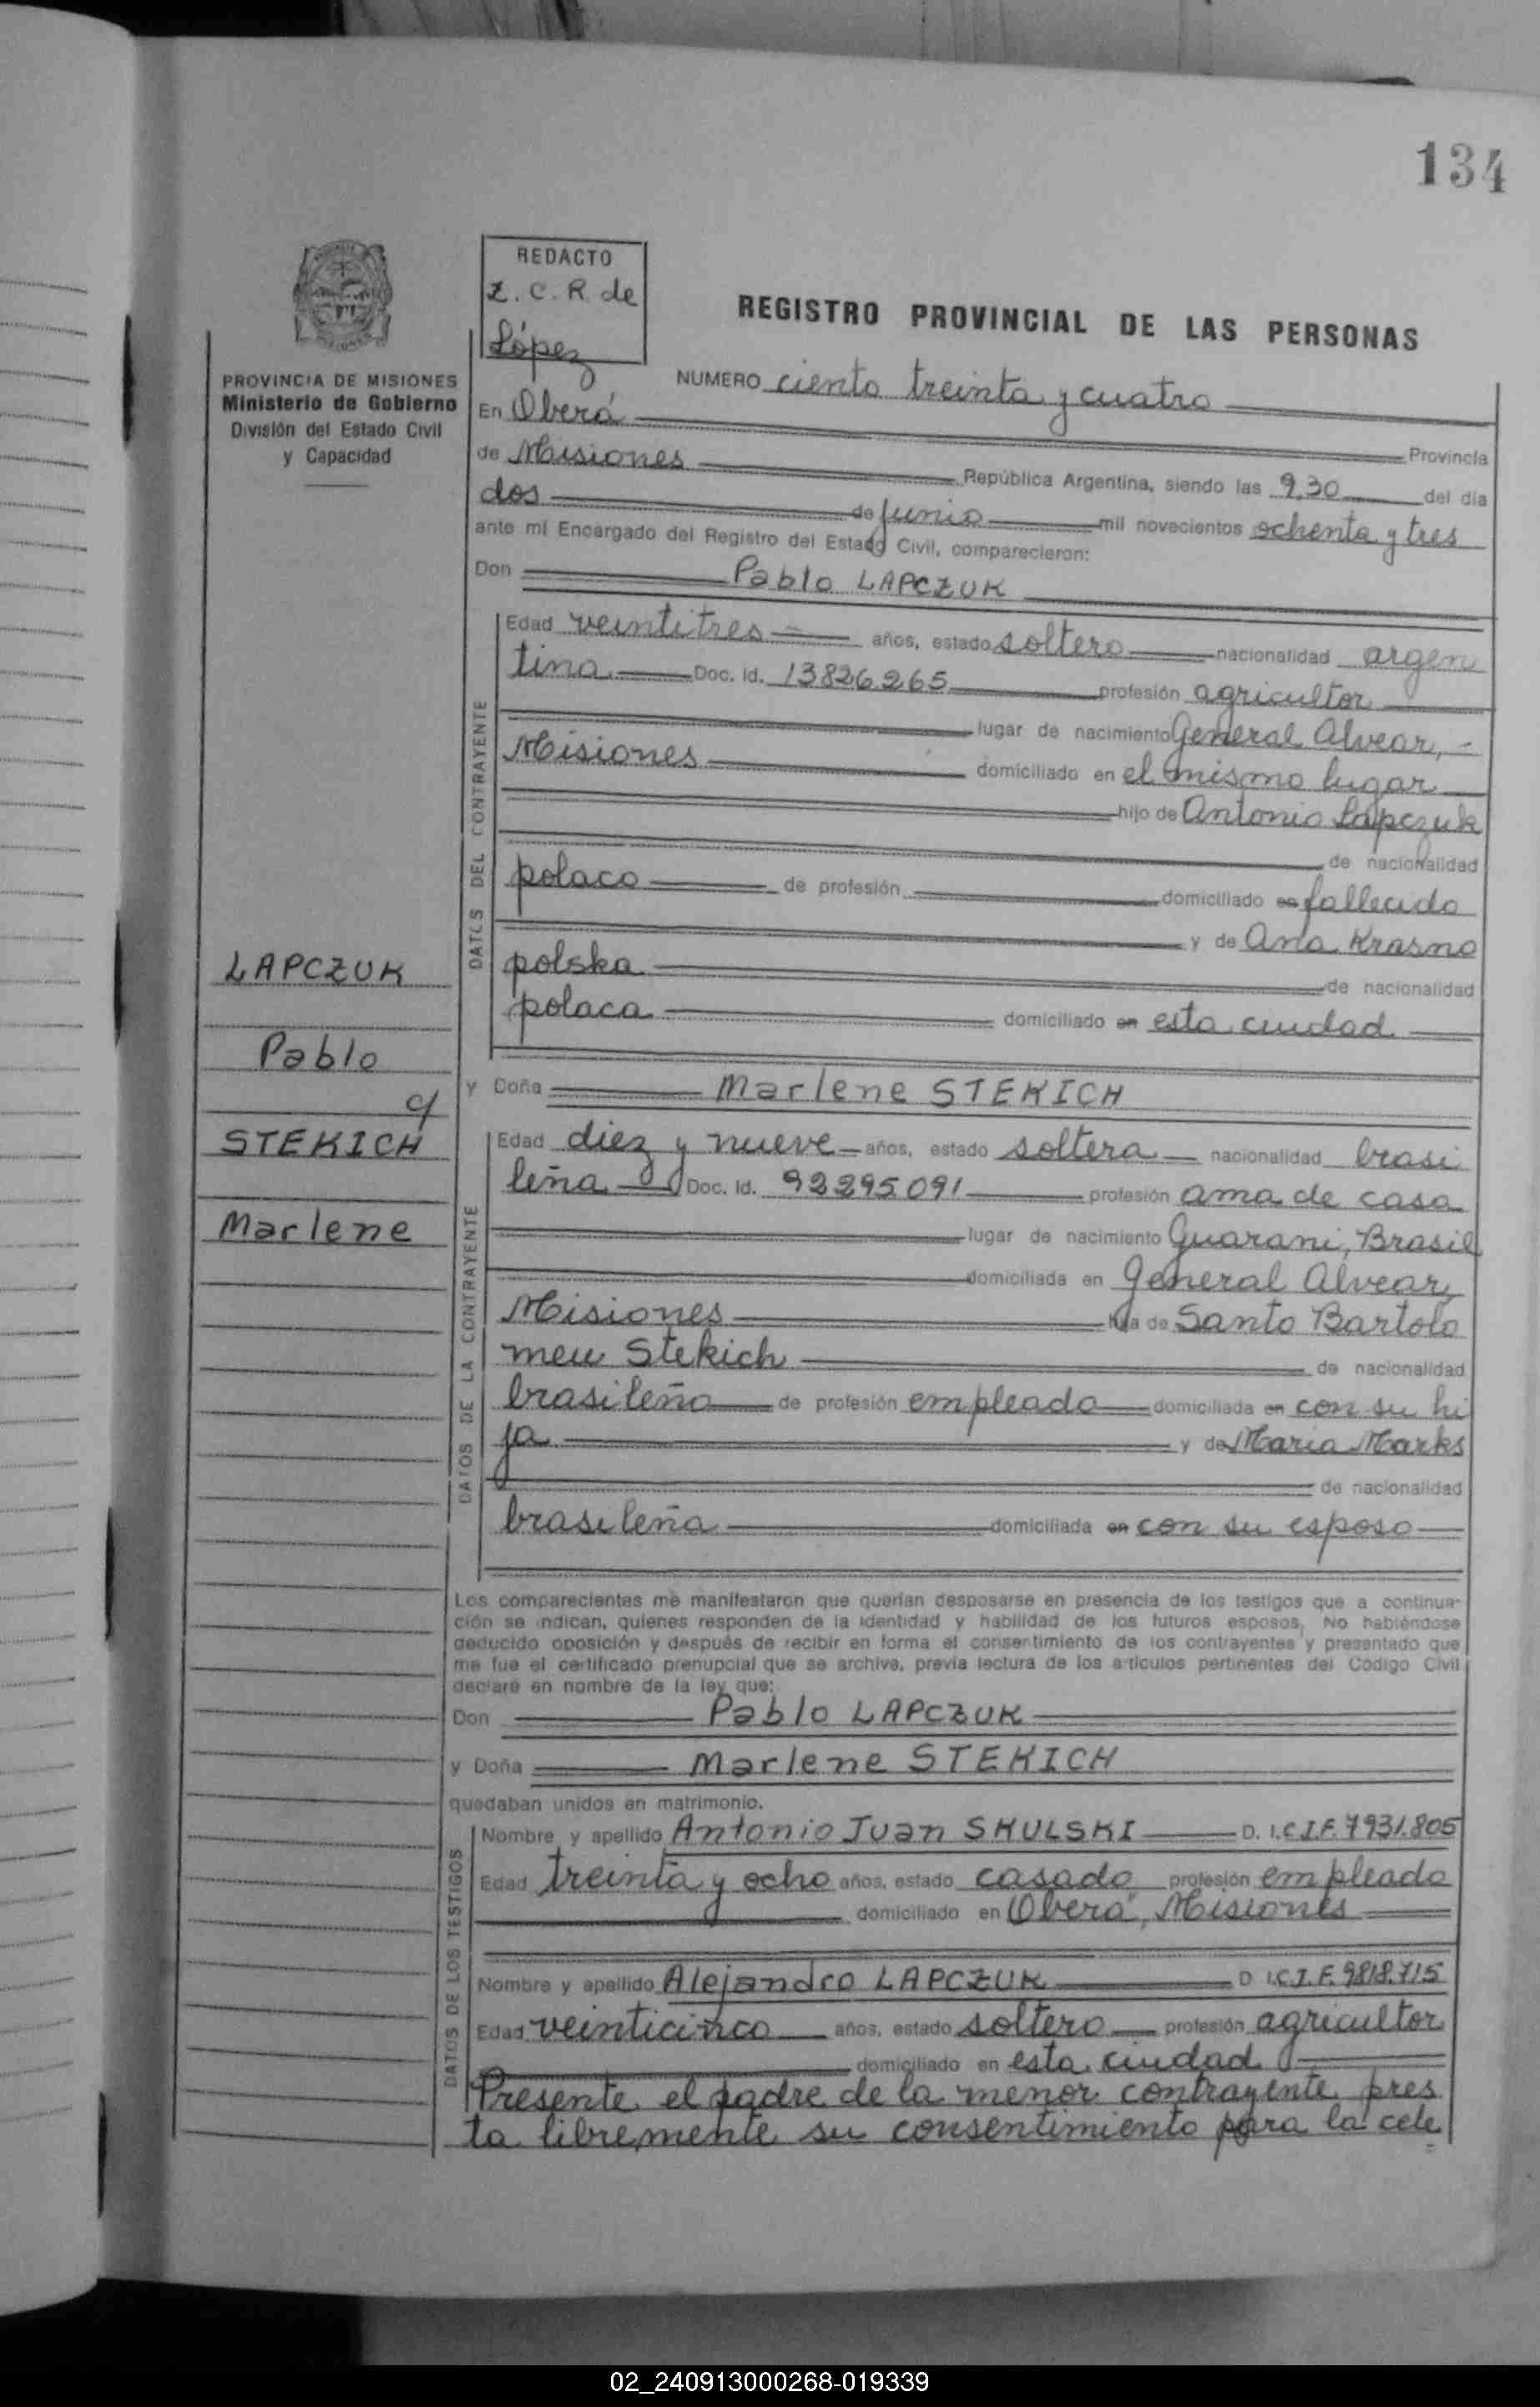 134
REDACTO
Z. C. R. de
López
REGISTRO PROVINCIAL DE LAS PERSONAS
PROVINCIA DE MISIONES
Ministerio de Gobierno
División del Estado Civil
y Capacidad
NUMERO ciento treinta y cuatro
En Oberá Provincia
de Misiones República Argentina, siendo las 9,30 del día
dos de Junio mil novecientos ochenta y tres
ante mí Encargado del Registro del Estado Civil, comparecieron:
Don Pablo LAPCZUK
DATOS DEL CONTRAYENTE
Edad veintitres años, estado soltero nacionalidad argen
tina Doc. Id. 13826.265 profesión agricultor
lugar de nacimiento General Alvear, -
Misiones domiciliado en el mismo lugar
hijo de Antonio Lapczuk
de nacionalidad
polaco de profesión domiciliado en fallecido
y de Ana Krasno
polska de nacionalidad
polaca domiciliado en esta ciudad
LAPCZUK
Pablo
c/
STEKICH
Marlene
y Doña Marlene STEKICH
DATOS DE LA CONTRAYENTE
Edad diez y nueve años, estado soltera nacionalidad brasi
leña Doc. Id. 92295.091 profesión ama de casa
lugar de nacimiento Guarani, Brasil
domiciliada en General Alvear,
Misiones hija de Santo Bartolo
meu Stekich de nacionalidad
brasileña de profesión empleado domiciliada en con su hi
ja y de Maria Marks
de nacionalidad
brasileña domiciliada en con su esposo
Los comparecientes me manifestaron que querían desposarse en presencia de los testigos que a continua-
ción se indican, quienes responden de la identidad y habilidad de los futuros esposos. No habiéndose
deducido oposición y después de recibir en forma el consentimiento de los contrayentes y presentado que
me fue el certificado prenupcial que se archiva, previa lectura de los artículos pertinentes del Código Civil
declaré en nombre de la ley que:
Don Pablo LAPCZUK
y Doña Marlene STEKICH
quedaban unidos en matrimonio.
DATOS DE LOS TESTIGOS
Nombre y apellido Antonio Juan SKULSKI D. I. C.I.F. 7931.805
Edad treinta y ocho años, estado casado profesión empleado
domiciliado en Oberá, Misiones
Nombre y apellido Alejandro LAPCZUK D I. C.I.F. 9818.715
Edad veinticinco años, estado soltero profesión agricultor
domiciliado en esta ciudad
Presente el padre de la menor contrayente pres
ta libremente su consentimiento para la cele
02_240913000268-019339